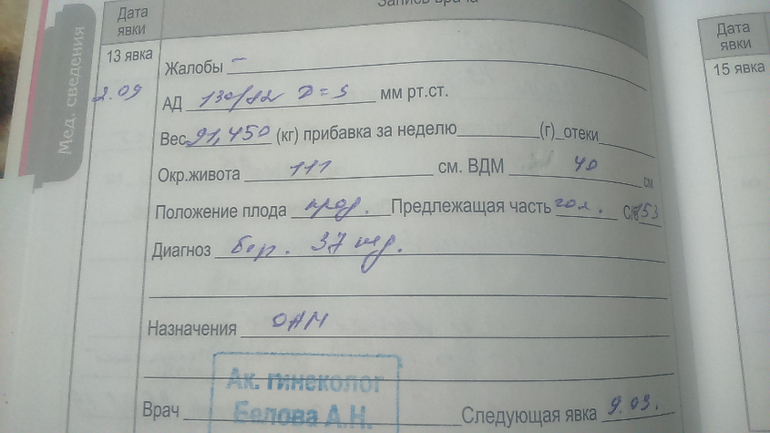 Дата явки
Запись врача
Мед. сведения
13 явка
2.09
Жалобы –
АД 130/82 D=S мм рт.ст.
Вес 91,450 (кг) прибавка за неделю (г) отеки
Окр.живота 111 см. ВДМ 40 см
Положение плода прод. Предлежащая часть гол. С/б 153
Диагноз бер. 37 нед.
Назначения ОАМ
Ак. гинеколог
Белова А.Н.
Врач Следующая явка 9.03.
Дата явки
15 явка